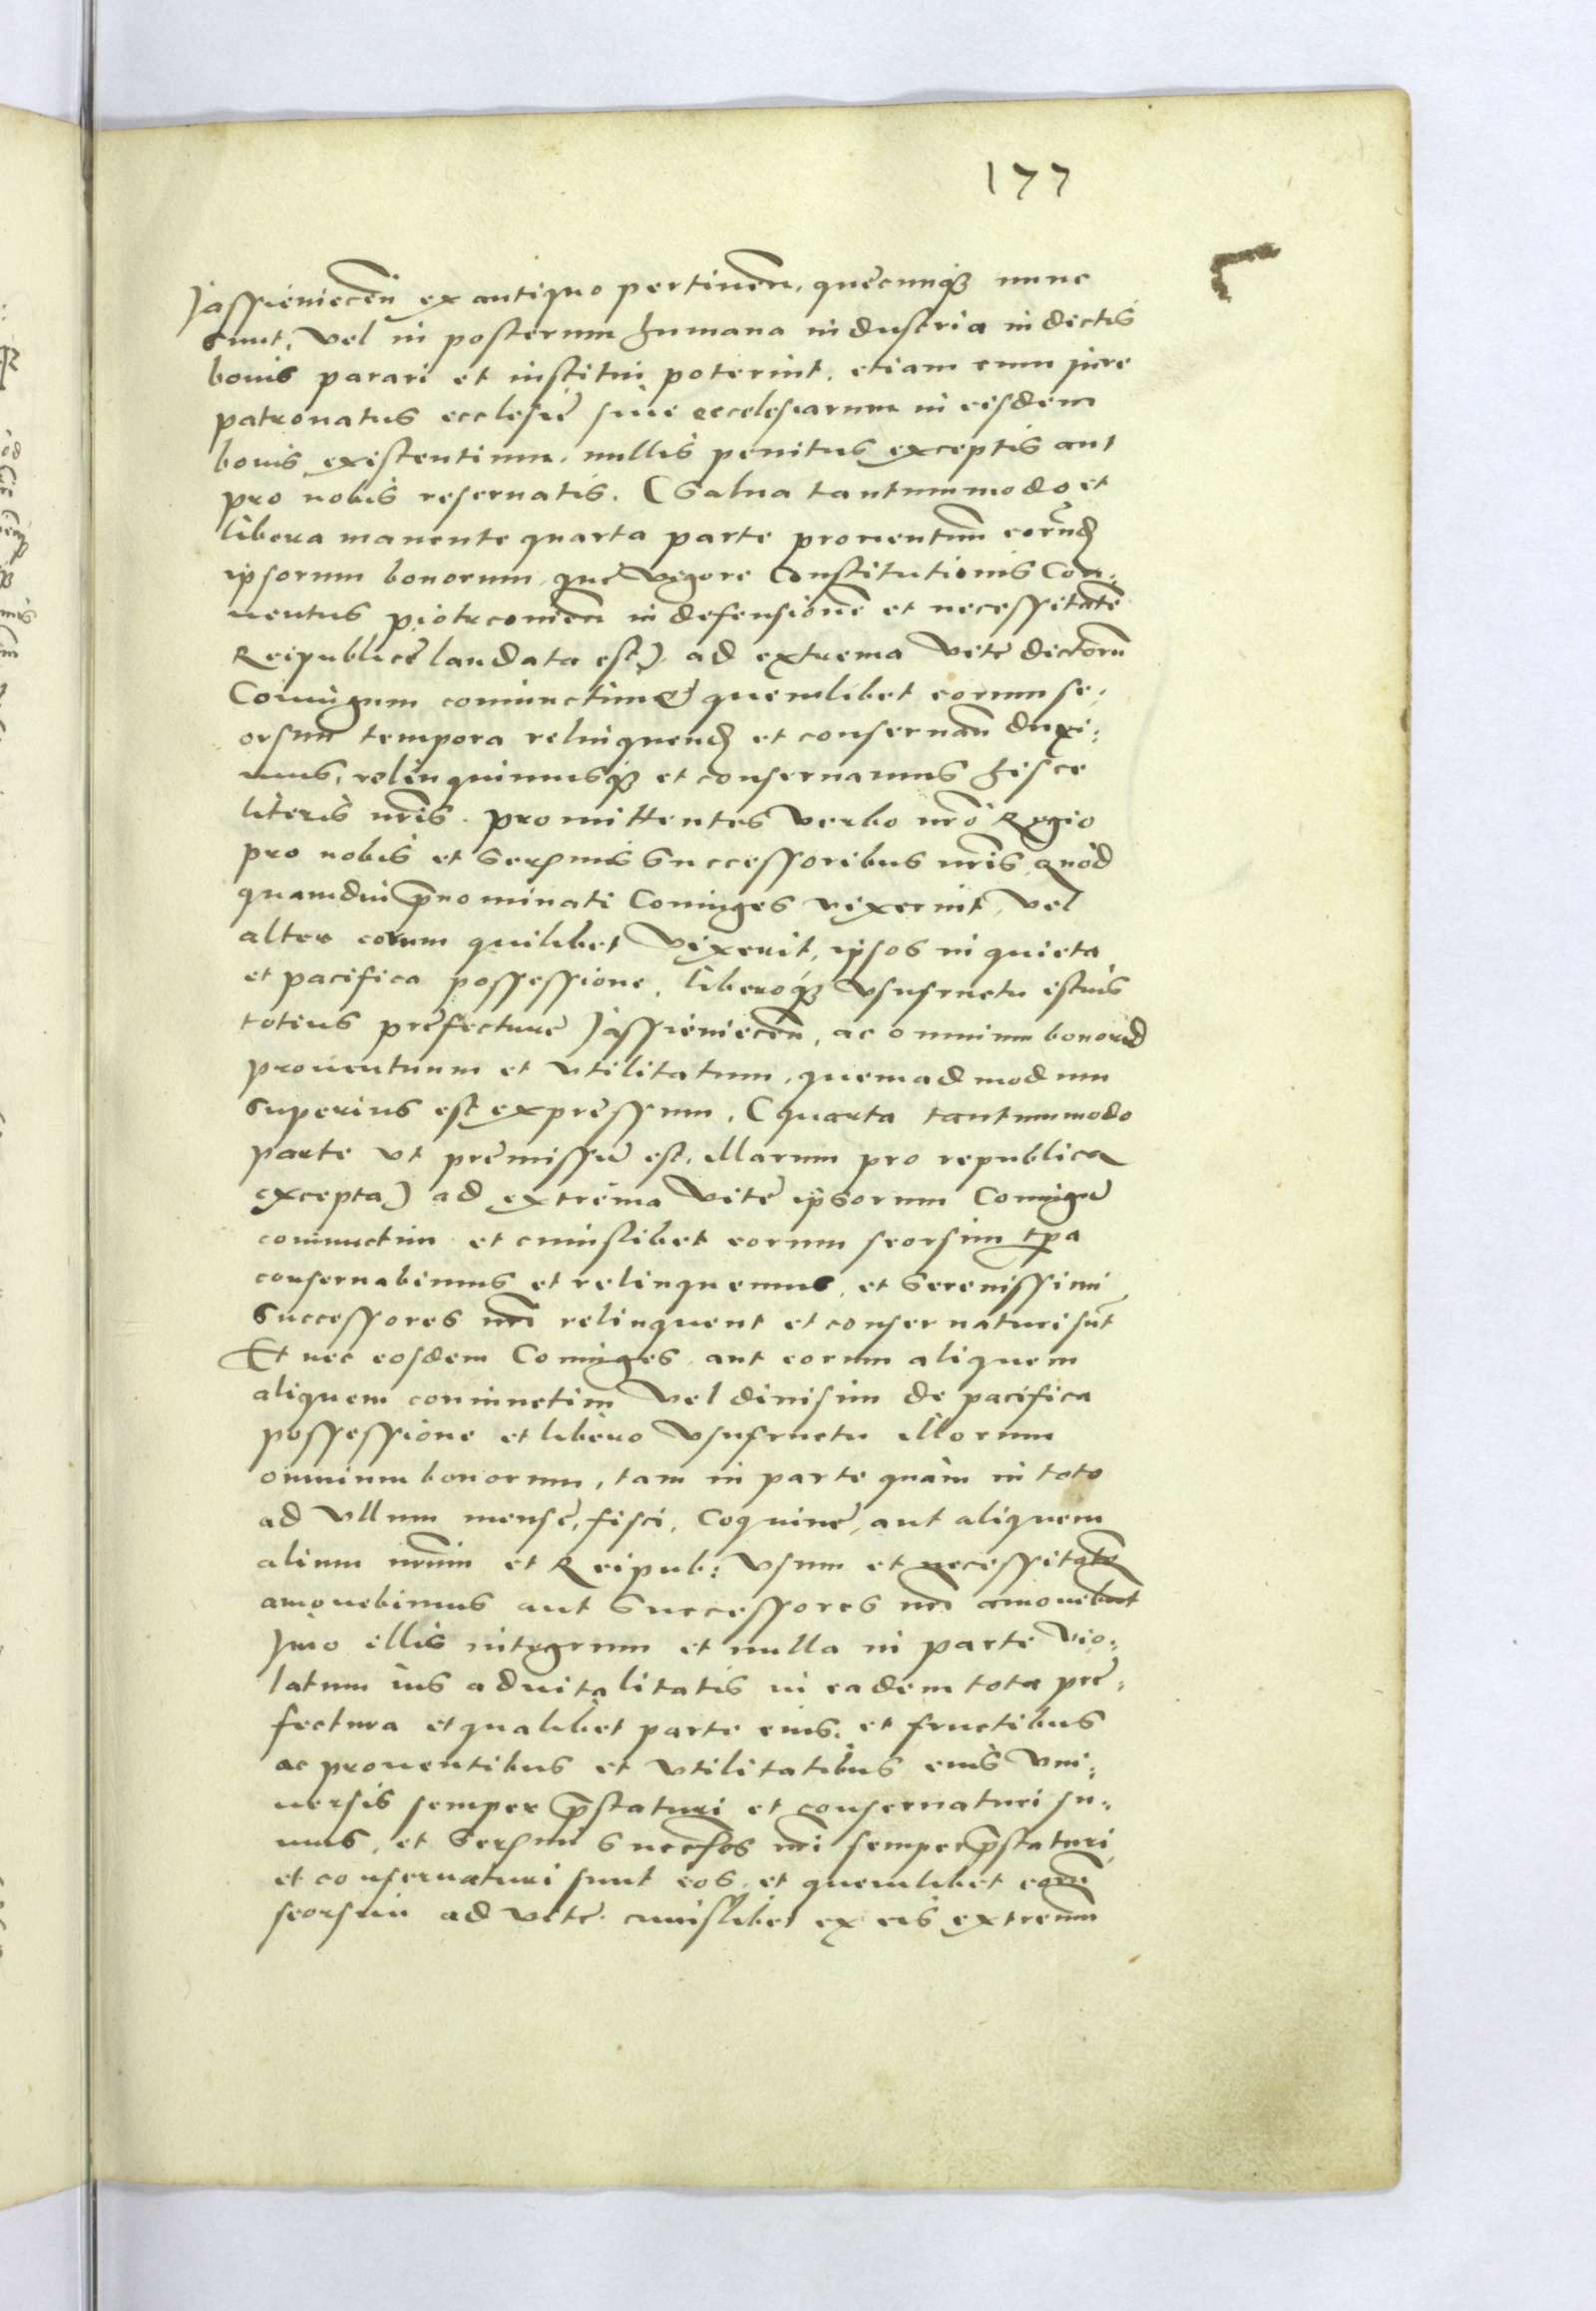 177
Jassieniecen̄ ex antiquo pertinen̄, quęcunqꝫ nunc
sunt, vel in posterum humana industria in dictis
bonis parari et institui poterint, etiam cum jure
patronatus ecclesię siue ecclesiarum in eisdem
bonis existentium, nullis penitus exceptis aut
pro nobis reseruatis. (Salua tantummodo et
libera manente quarta parte prouentuum eorund
ipsorum bonorum, quę vigore Constitutionis Con:
uentus piotrcouien̄ in defensionē et necessitatē
Reipublicę laudata est) ad extrema vitę dictorū
Coniugum coniunctim et quemlibet eorum se:
orsim tempora relinquend et conseruan̄ duxi:
mus, relinquimusqꝫ et conseruamus hisce
literis nr̄is. promittentes verbo nr̄o Regio
pro nobis et Serꝰmis Successoribus nr̄is, quòd
quamdiu p̄nominati Coniuges vixerint, vel
alter eorum quilibet vixerit, ipsos in quieta
et pacifica possessione, liberoqꝫ vsufructu istius
totius pręfecturę Jassieniecen̄, ac omnium bonorū
prouentuum et vtilitatum, quemadmodum
superius est expressum, (quarta tantummodo
parte vt pręmissū est, illarum pro republica
excepta) ad extrema vitę ipsorum Coniugū
coniunctim et cuiuslibet eorum seorsim tp̄a
conseruabimus et relinquemus, et Serenissimi
Successores nr̄i relinquent et conseruaturi sūt
Et nec eosdem Coniuges, aut eorum aliquem
aliquem coniunctim vel diuisim de pacifica
possessione et libero vsufructu illorum
omnium bonorum, tam in parte quàm in toto
ad vllum mensę, fisci, Coquinę, aut aliquem
alium nr̄um et Reipub: vsum et necessitatē
amouebimus aut Successores nr̄i amouebūt
Jmo illis integrum et nulla in parte vio:
latum ius aduitalitatis in eadem tota prę:
fectura et qualibet parte eius, et fructibus
ac prouentibus et vtilitatibus eius vni:
uersis semper p̄staturi et conseruaturi su:
mus, et Serꝰmi Succesos nr̄i semper p̄staturi
et conseruaturi sunt eos, et quemlibet eorū
seorsim ad vitę cuiuslibet ex eis extremū